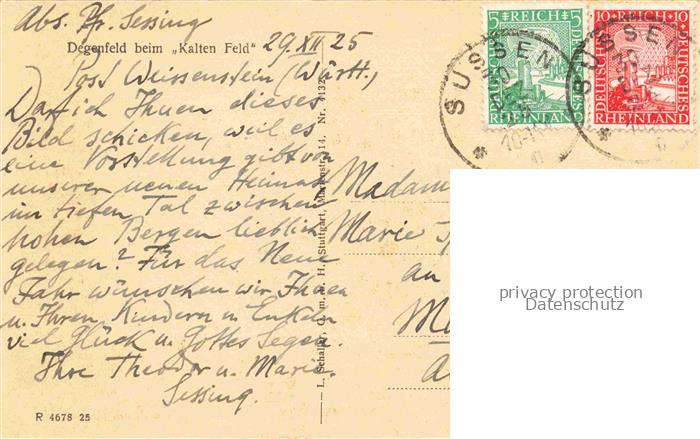 Abs. Pf. Sessing
Degenfeld beim „Kalten Feld" 29. XII 25
Post Weissenstein (Württ.)
Darf ich Ihnen dieses
Bild schicken, weil es
eine Vorstellung gibt von
unserer neuen Heimat
im tiefen Tal zwischen
hohen Bergen lieblich
gelegen? Für das Neue
Jahr wünschen wir Ihnen
u. Ihren Kindern u. Enkeln
viel Glück u. Gottes Segen.
Ihre Theodor u. Marie
Sessing.
R 4678 25
L. Schaller, G. m. b. H., Stuttgart, Marienstraße 14. Nr.
Madam
Marie
an
5 REICH 5
DEUTSCHES
RHEINLAND
SÜSSEN
10 REICH 10
DEUTSCHES
RHEINLAND
SÜSSEN
privacy protection
Datenschutz